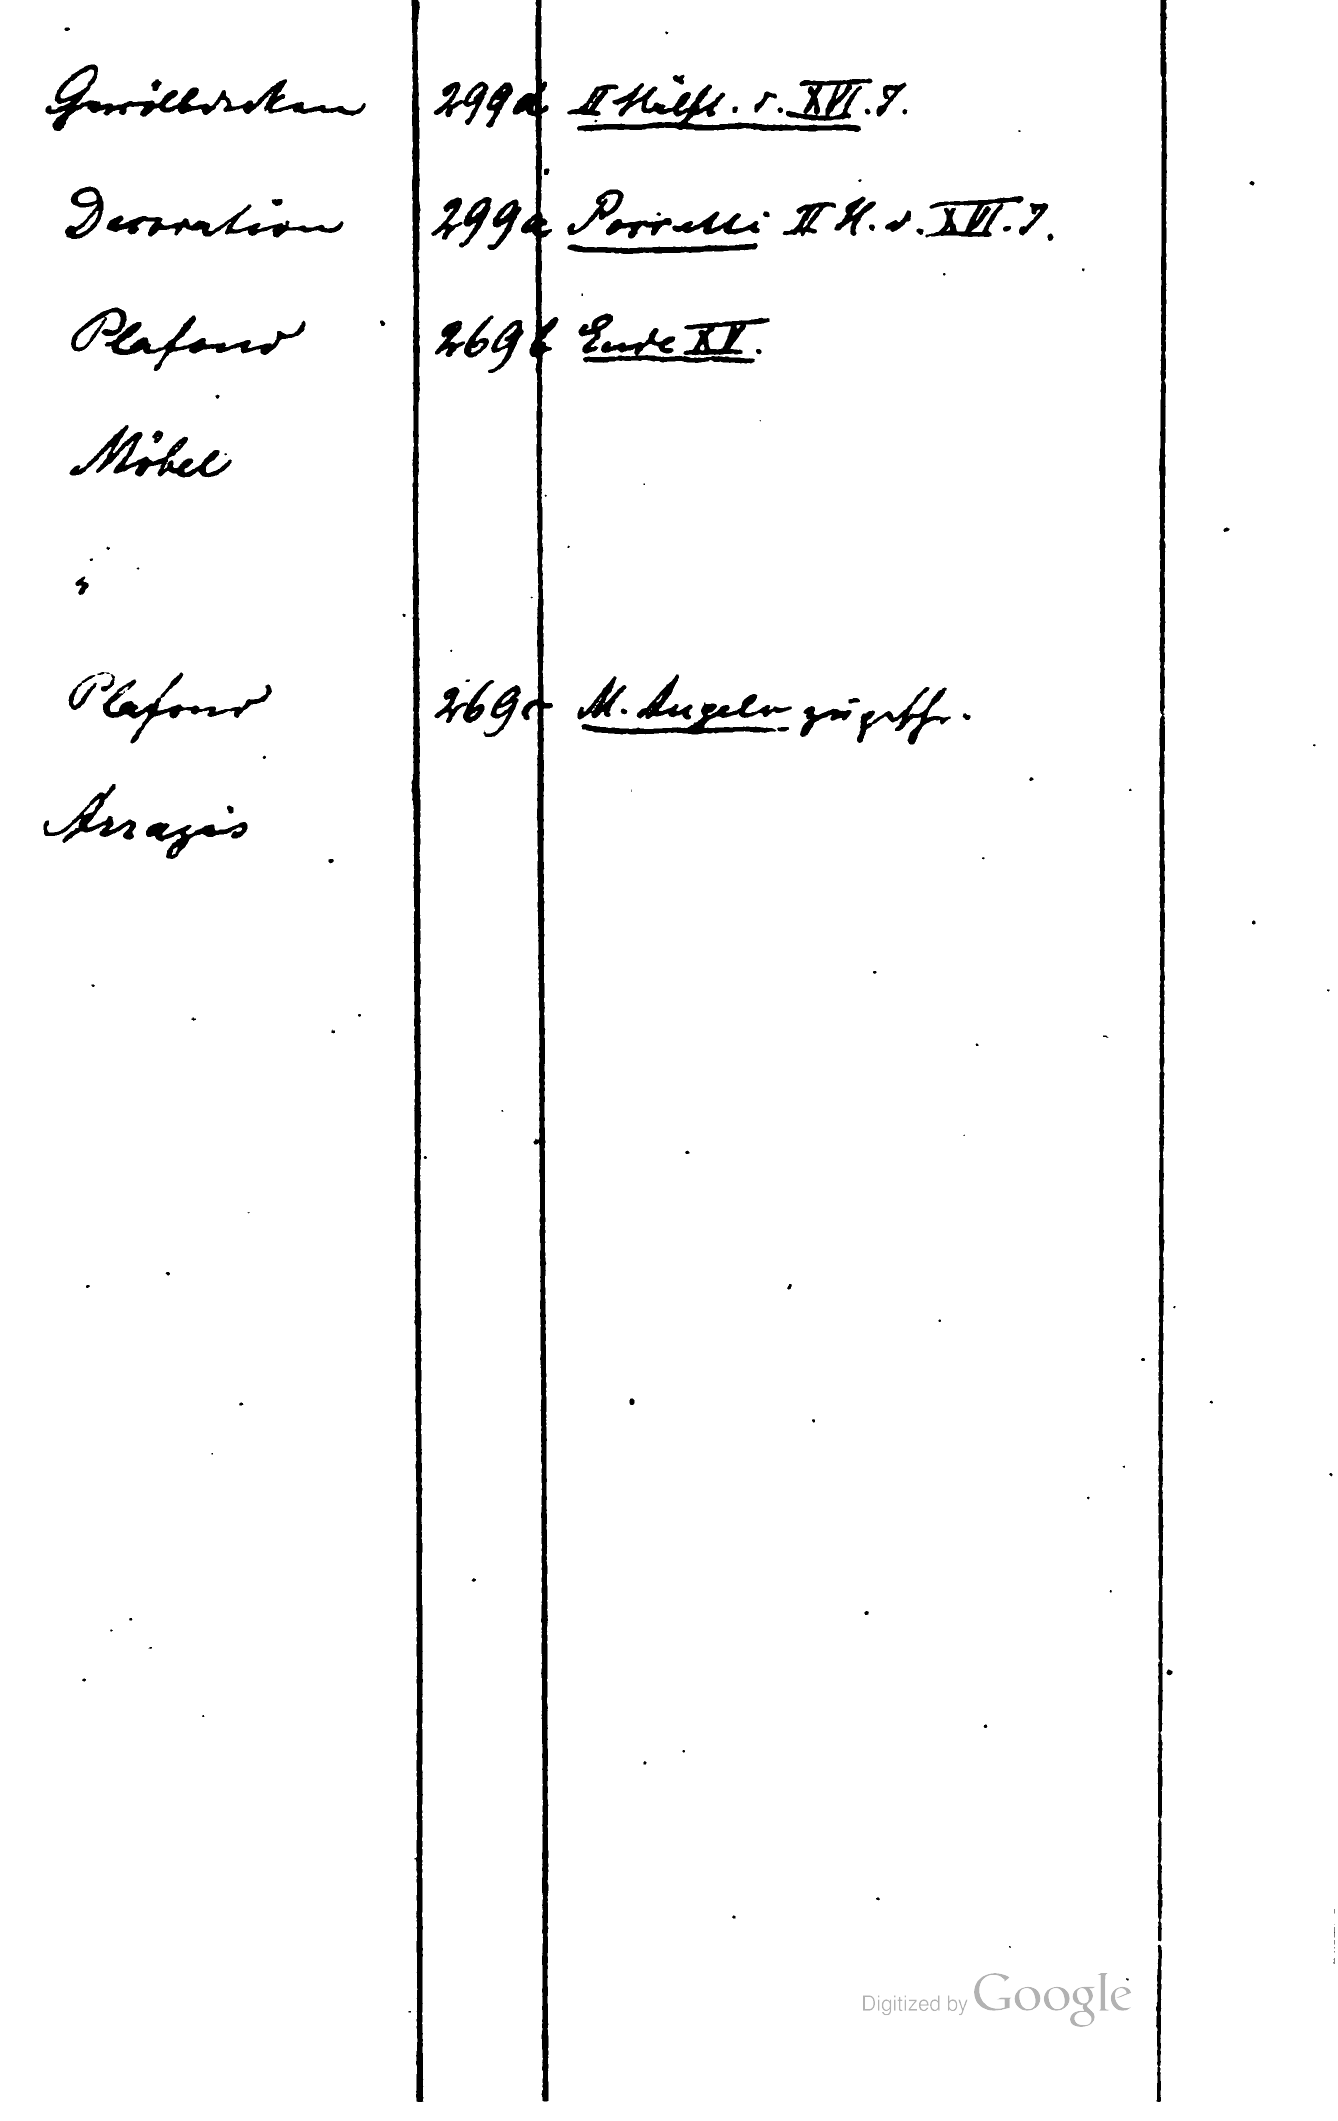 Gewölbdecken 299d II Hälft. d. XVI. J.
Decoration 299a Porretti II H. d. XVI. J.
Plafond 269b Ende XV.
Möbel
"
Plafond 269c M. Angelo zugesch.
Arrazis
Digitized by Google